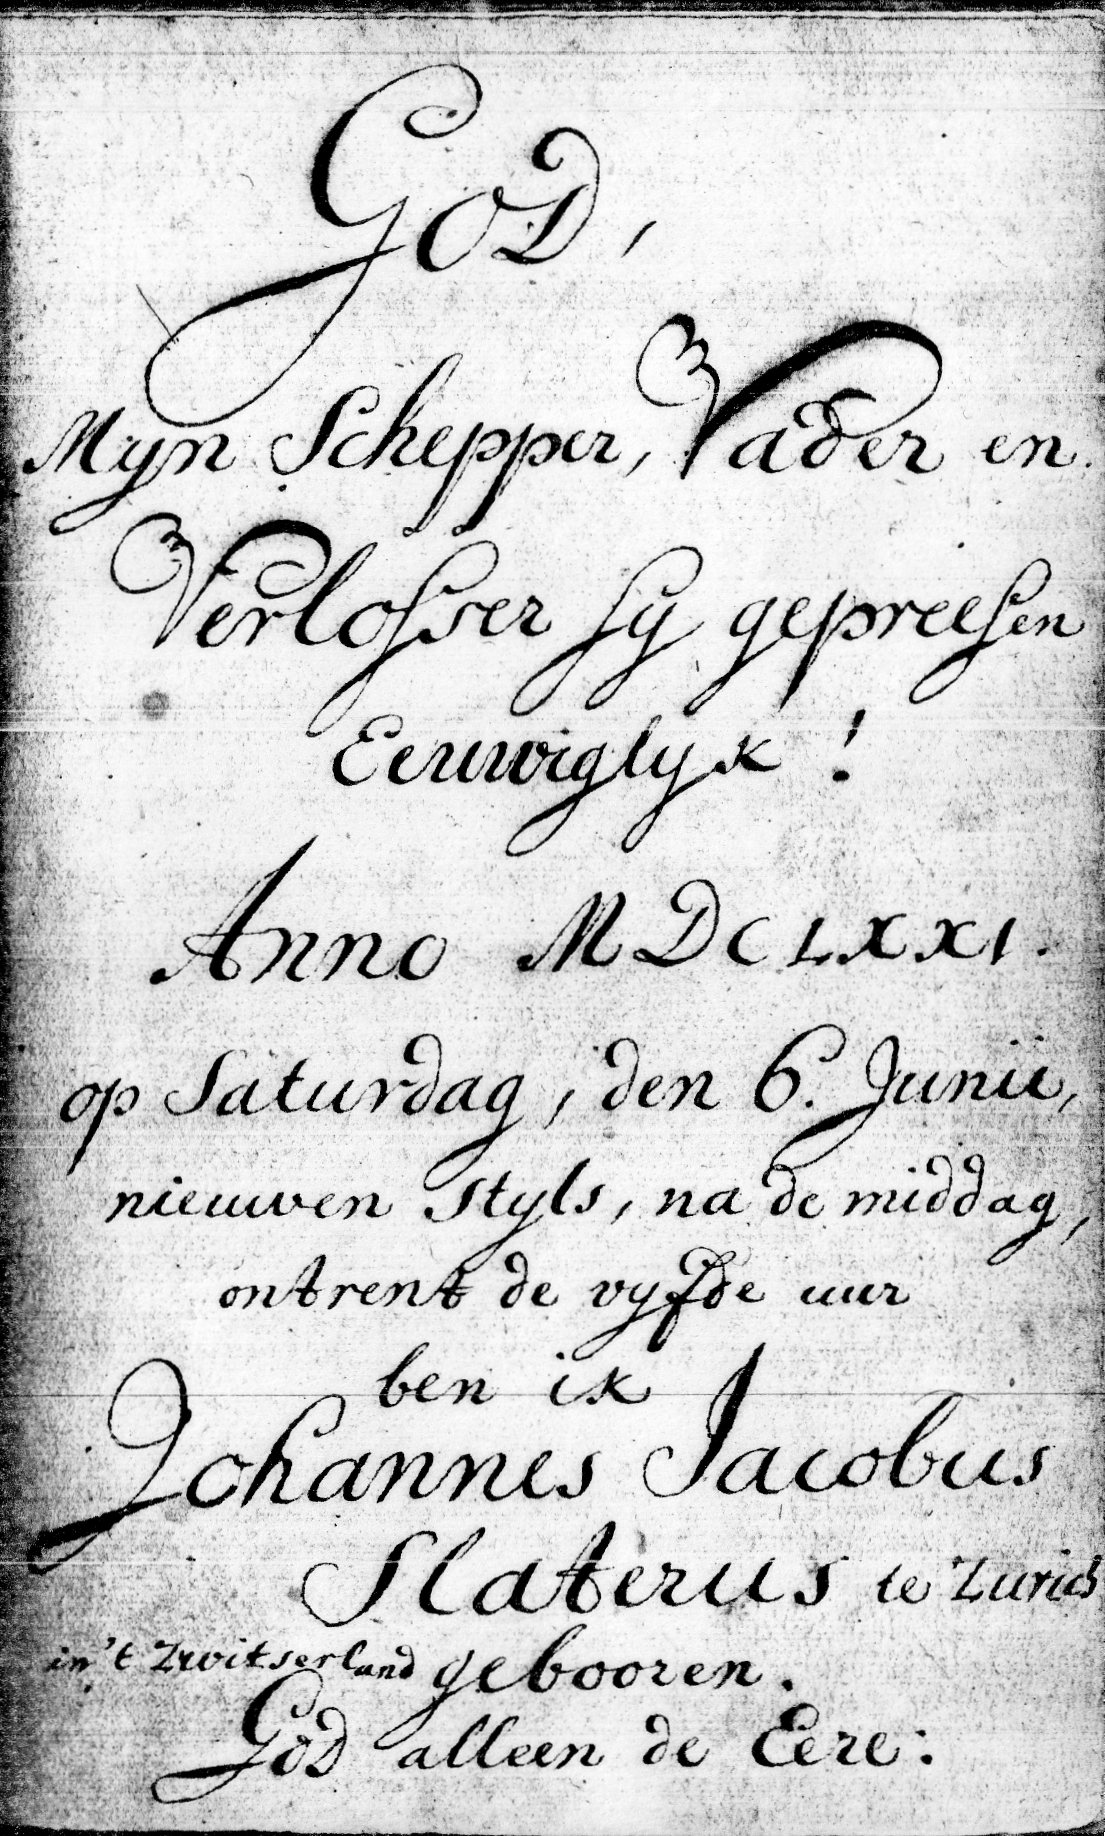 GOD,
Mijn Schepper, Vader en
Verlosser sij gepreesen
Eeuwiglijk!
Anno MDCLXXI.
op Saturdag, den 6. Junii,
nieuwen Styls, na de middag,
ontrent de vijfde uur
ben ik
Johannes Jacobus
Slaterus te Zurich
in't Zwitserland gebooren.
GOD alleen de Eere: